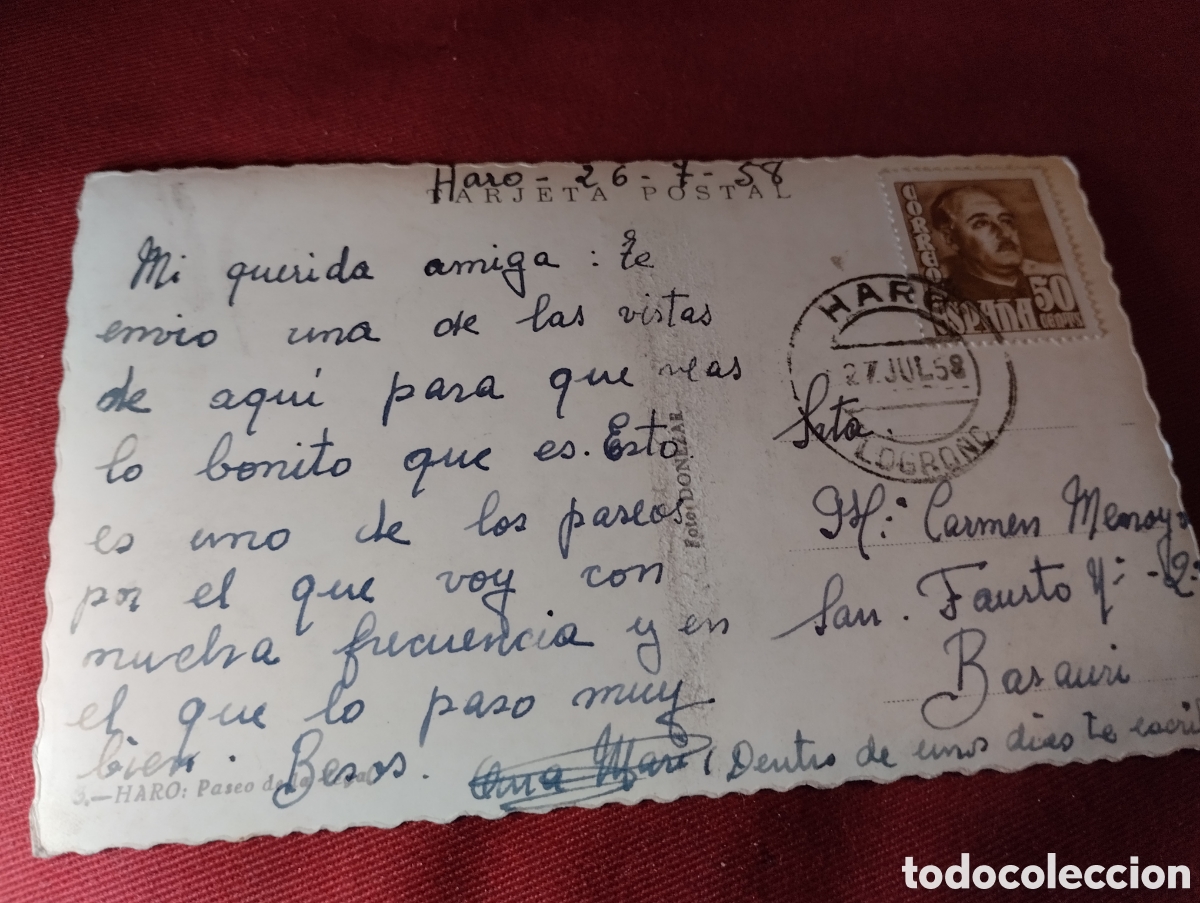 Haro - 26 - 7 - 58
TARJETA POSTAL
Mi querida amiga: te
envio una de las vistas
de aquí para que veas
lo bonito que es. Esto
es uno de los paseos
por el que voy con
mucha frecuencia y en
el que lo paso muy
bien. Besos. Ana Mari
(Dentro de unos dias te escri
3.—HARO: Paseo de
Foto: DONEZAR
CORREOS
ESPAÑA 50
CENTS
HARO
27 JUL 58
LOGROÑO
Srta.
M.ª Carmen Menoyo
San. Fausto Nº - 2
Basauri
todocoleccion